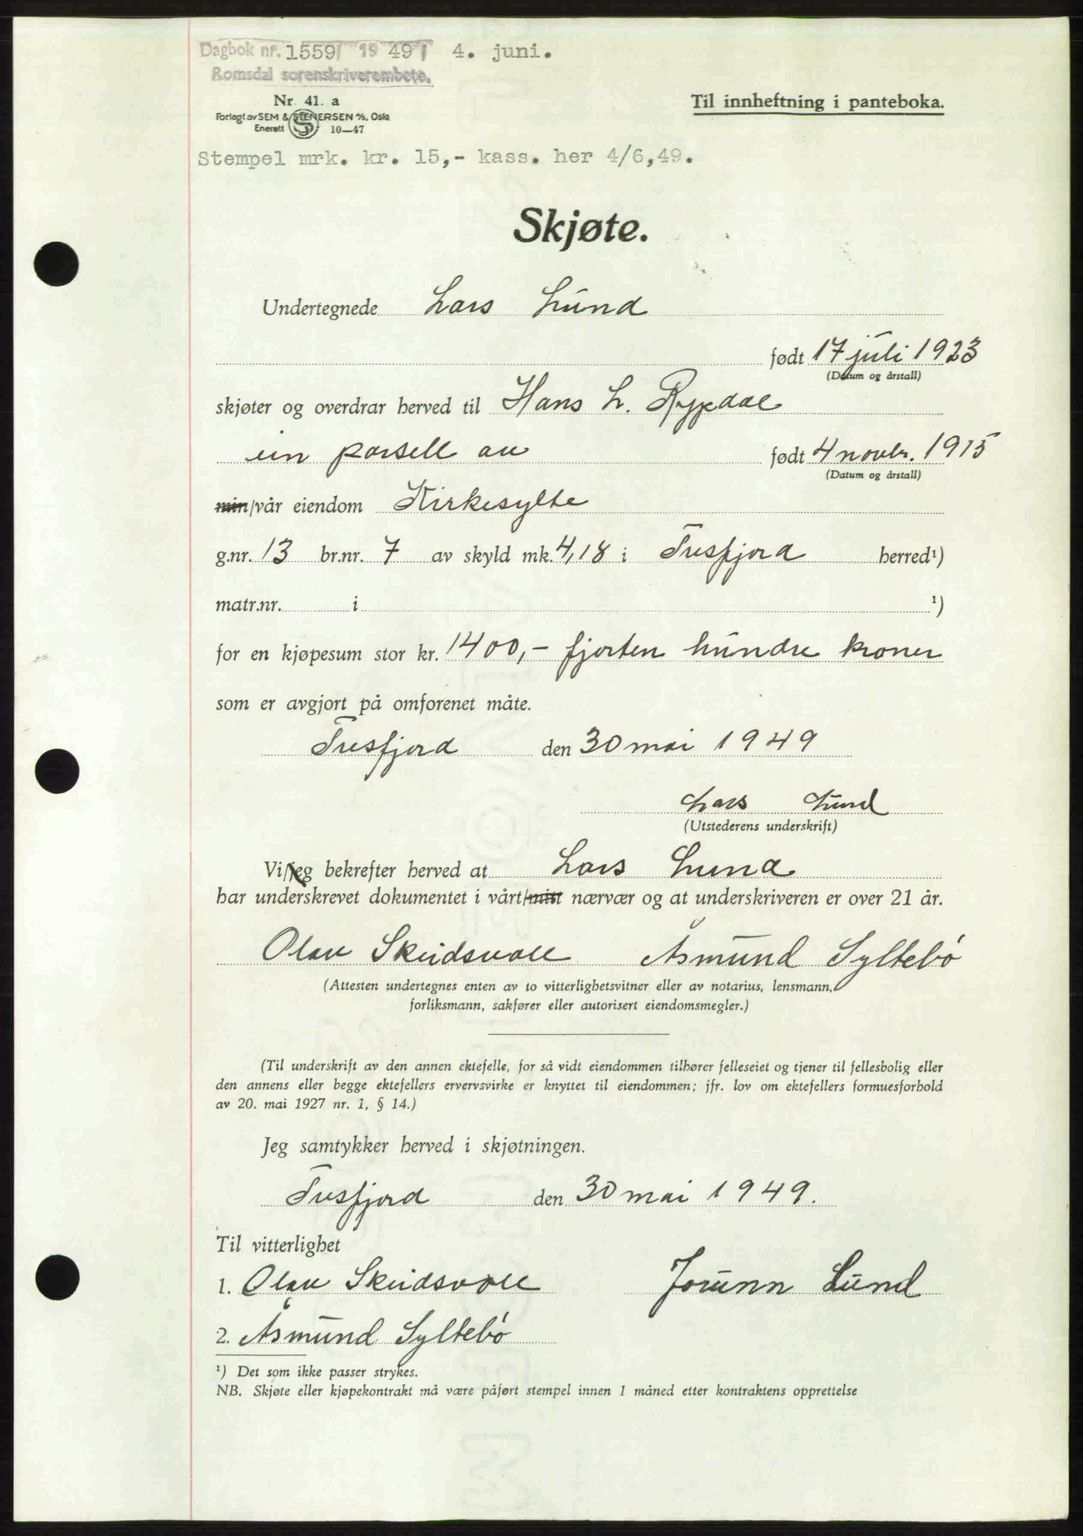 Dagbok nr. 1559/ 19 49/ 4. juni.
Romsdal sorenskriverembete.
Nr. 41. a
Til innheftning i panteboka.
Forlagt av SEM & STENERSEN A/S, Oslo
Enerett 10—47
Stempel mrk. kr. 15,- kass. her 4/6,49.
Skjøte.
Undertegnede Lars Lund
født 17 juli 1923
(Datum og årstall)
skjøter og overdrar herved til Hans L. Rypdal
ein parsell av født 4 novbr. 1915
(Datum og årstall)
min/vår eiendom Kirkesylte
g.nr. 13 br.nr. 7 av skyld mk. 4,18 i Tresfjord herred¹)
matr.nr. i ¹)
for en kjøpesum stor kr. 1400,- fjorten hundre kroner
som er avgjort på omforenet måte.
Tresfjord den 30 mai 1949
Lars Lund
(Utstederens underskrift)
Vi/jeg bekrefter herved at Lars Lund
har underskrevet dokumentet i vårt/mitt nærvær og at underskriveren er over 21 år.
Olav Skeidsvoll Åsmund Syltebö
(Attesten undertegnes enten av to vitterlighetsvitner eller av notarius, lensmann,
forliksmann, sakfører eller autorisert eiendomsmegler.)
(Til underskrift av den annen ektefelle, for så vidt eiendommen tilhører felleseiet og tjener til fellesbolig eller
den annens eller begge ektefellers ervervsvirke er knyttet til eiendommen; jfr. lov om ektefellers formuesforhold
av 20. mai 1927 nr. 1, § 14.)
Jeg samtykker herved i skjøtningen.
Tresfjord den 30 mai 1949.
Til vitterlighet
1. Olav Skeidsvoll Jorunn Lund
2. Åsmund Syltebö
¹) Det som ikke passer strykes.
NB. Skjøte eller kjøpekontrakt må være påført stempel innen 1 måned etter kontraktens opprettelse